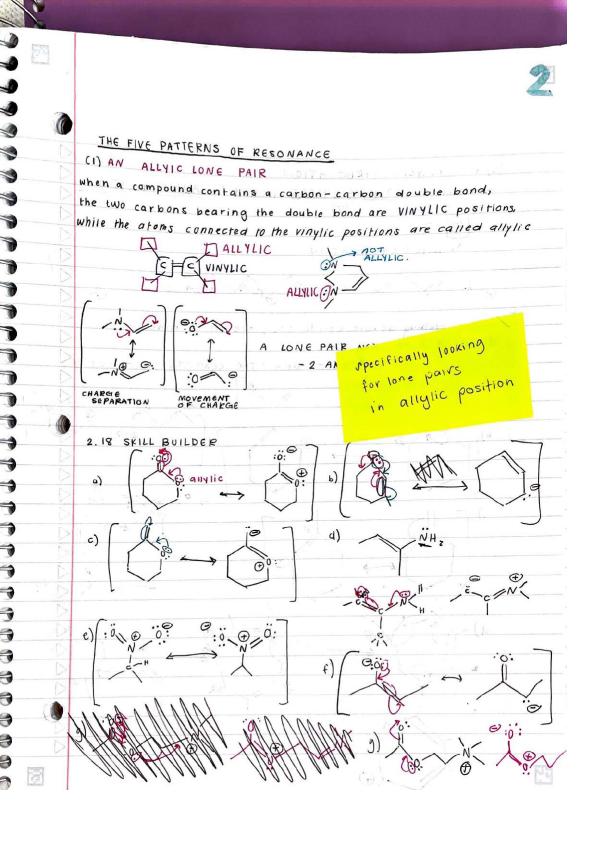 2
THE FIVE PATTERNS OF RESONANCE
(1) AN ALLYIC LONE PAIR
when a compound contains a carbon-carbon double bond,
the two carbons bearing the double bond are VINYLIC positions,
while the atoms connected to the vinylic positions are called allylic
ALLYLIC
C = C VINYLIC
NOT ALLYLIC.
N
ALLYLIC N
N
O
N
O
A LONE PAIR
- 2
specifically looking
for lone pairs
in allylic position
CHARGE SEPARATION
MOVEMENT OF CHARGE
2.18 SKILL BUILDER
a) O O allylic O O
b) O
c) O O O
d) NH2
C C N H C
C C N
e) O N O C H O N O
f) O O
g)
g) O O N O O